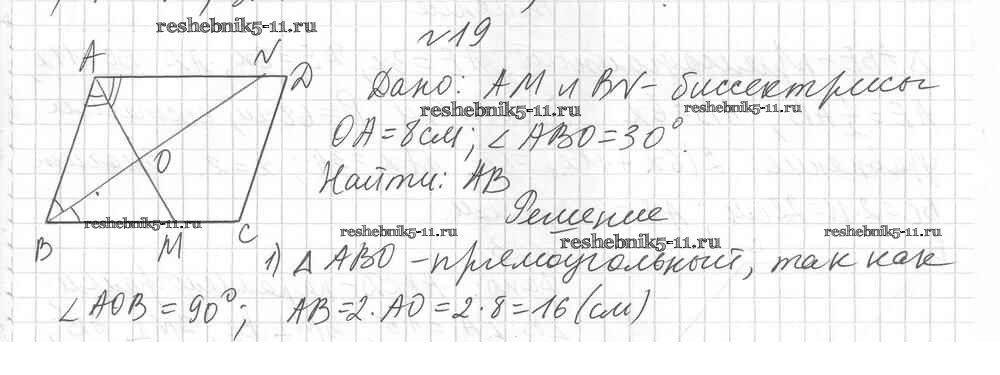 reshebnik5-11.ru
№19
A N D
Дано: AM и BN - биссектрисы
reshebnik5-11.ru reshebnik5-11.ru
OA = 8 см; ∠ABO = 30°.
O
Найти: AB
Решение
reshebnik5-11.ru reshebnik5-11.ru reshebnik5-11.ru reshebnik5-11.ru
B M C
1) Δ ABO - прямоугольный, так как
∠AOB = 90°; AB = 2·AO = 2·8 = 16 (см)